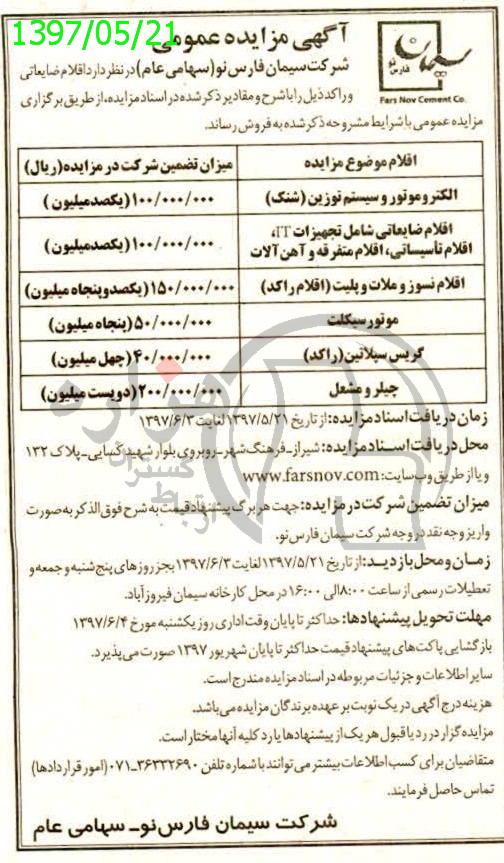 1397/05/21
آگهی مزایده عمومی
سیمان
فارس نو
Fars Nov Cement Co.
شرکت سیمان فارس نو (سهامی عام) در نظر دارد اقلام ضایعاتی
و راکد ذیل را با شرح و مقادیر ذکر شده در اسناد مزایده، از طریق برگزاری
مزایده عمومی با شرایط مشروحه ذکر شده به فروش رساند.
اقلام موضوع مزایده	میزان تضمین شرکت در مزایده (ریال)
الکتروموتور و سیستم توزین (شنک)	۱۰۰/۰۰۰/۰۰۰ (یکصد میلیون)
اقلام ضایعاتی شامل تجهیزات IT،
اقلام تأسیساتی، اقلام متفرقه و آهن آلات	۱۰۰/۰۰۰/۰۰۰ (یکصد میلیون)
اقلام نسوز و ملات و پلیت (اقلام راکد)	۱۵۰/۰۰۰/۰۰۰ (یکصد و پنجاه میلیون)
موتور سیکلت	۵۰/۰۰۰/۰۰۰ (پنجاه میلیون)
گریس سپلاتین (راکد)	۴۰/۰۰۰/۰۰۰ (چهل میلیون)
چیلر و مشعل	۲۰۰/۰۰۰/۰۰۰ (دویست میلیون)
زمان دریافت اسناد مزایده: از تاریخ ۱۳۹۷/۵/۲۱ لغایت ۱۳۹۷/۶/۳
محل دریافت اسناد مزایده: شیراز ـ فرهنگ شهر ـ روبروی بلوار شهید کسایی ـ پلاک ۱۳۲
و یا از طریق وب سایت: www.farsnov.com
میزان تضمین شرکت در مزایده: جهت هر برگ پیشنهاد قیمت به شرح فوق الذکر به صورت
واریز وجه نقد در وجه شرکت سیمان فارس نو.
زمان و محل بازدید: از تاریخ ۱۳۹۷/۵/۲۱ لغایت ۱۳۹۷/۶/۳ بجز روزهای پنج شنبه و جمعه و
تعطیلات رسمی از ساعت ۸:۰۰ الی ۱۶:۰۰ در محل کارخانه سیمان فیروزآباد.
مهلت تحویل پیشنهادها: حداکثر تا پایان وقت اداری روز یکشنبه مورخ ۱۳۹۷/۶/۴
بازگشایی پاکت‌های پیشنهاد قیمت حداکثر تا پایان شهریور ۱۳۹۷ صورت می‌پذیرد.
سایر اطلاعات و جزئیات مربوطه در اسناد مزایده مندرج است.
هزینه درج آگهی در یک نوبت بر عهده برندگان مزایده می‌باشد.
مزایده گزار در رد یا قبول هر یک از پیشنهادها یا رد کلیه آنها مختار است.
متقاضیان برای کسب اطلاعات بیشتر می‌توانند با شماره تلفن ۳۶۳۳۲۶۹۰-۰۷۱ (امور قراردادها)
تماس حاصل فرمایند.
شرکت سیمان فارس نو ـ سهامی عام